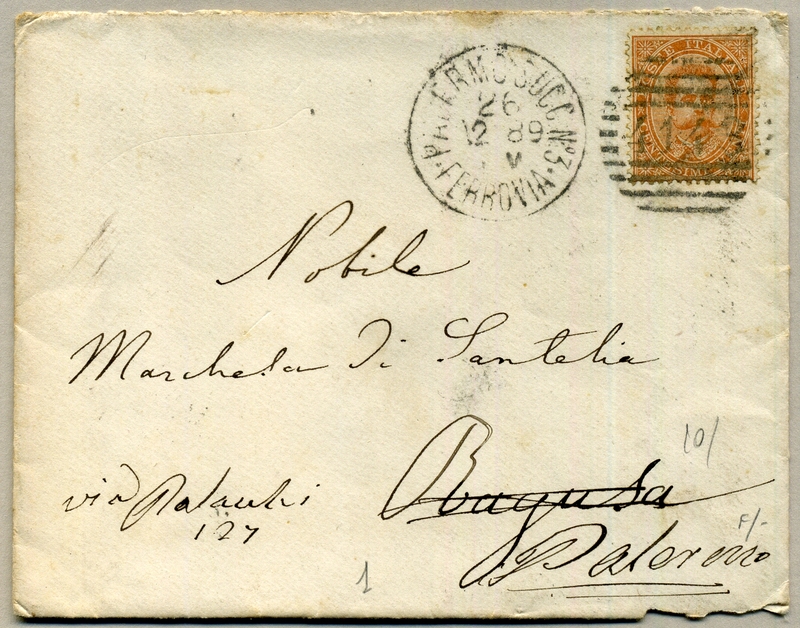 PALERMO SUCC. Nº 3.
26
12 89
V
· FERROVIA ·
STE ITALIANE
Nobile
Marchesa Di Santelia
10/
via
127
Ragusa
F/-
Palermo
1